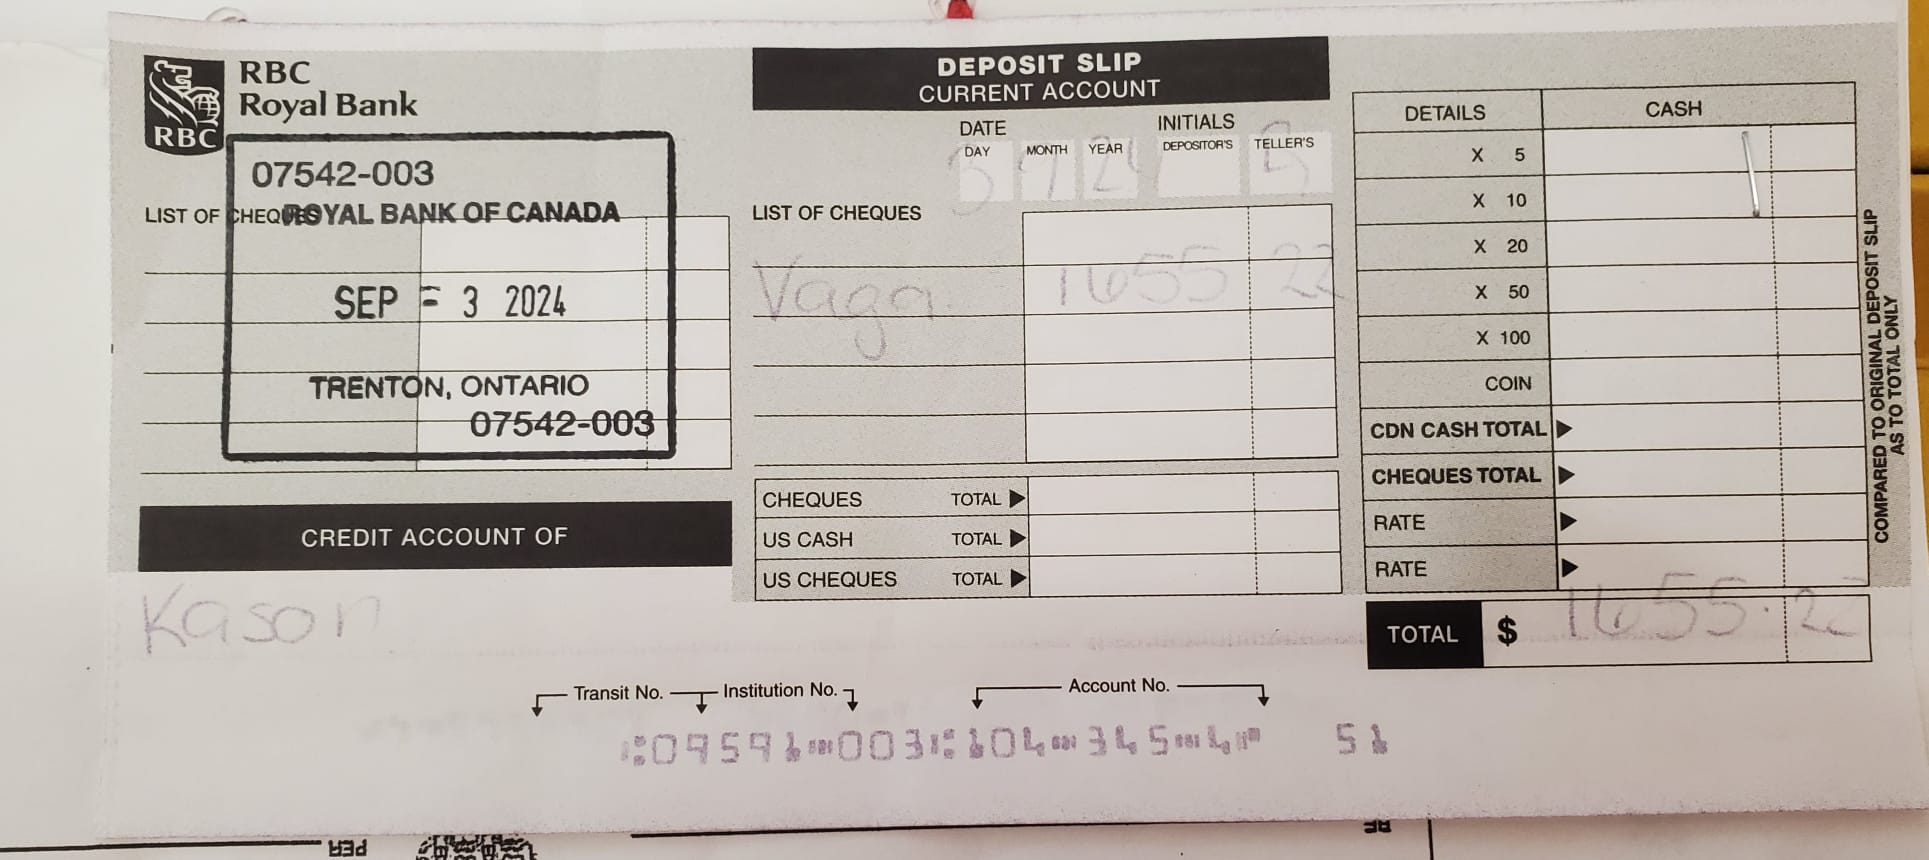 RBC
Royal Bank
RBC
07542-003
ROYAL BANK OF CANADA
SEP - 3 2024
TRENTON, ONTARIO
07542-003
LIST OF CHEQUES
CREDIT ACCOUNT OF
Kason
DEPOSIT SLIP
CURRENT ACCOUNT
DATE INITIALS
DAY MONTH YEAR DEPOSITOR'S TELLER'S
3 9 24
LIST OF CHEQUES
Vaga 1655 22
CHEQUES TOTAL
US CASH TOTAL
US CHEQUES TOTAL
DETAILS CASH
X 5
X 10
X 20
X 50
X 100
COIN
CDN CASH TOTAL
CHEQUES TOTAL
RATE
RATE
TOTAL $ 1655.22
COMPARED TO ORIGINAL DEPOSIT SLIP
AS TO TOTAL ONLY
Transit No. Institution No. Account No.
⑆09591⑉003⑆104⑉345⑉4⑈ 51
PER